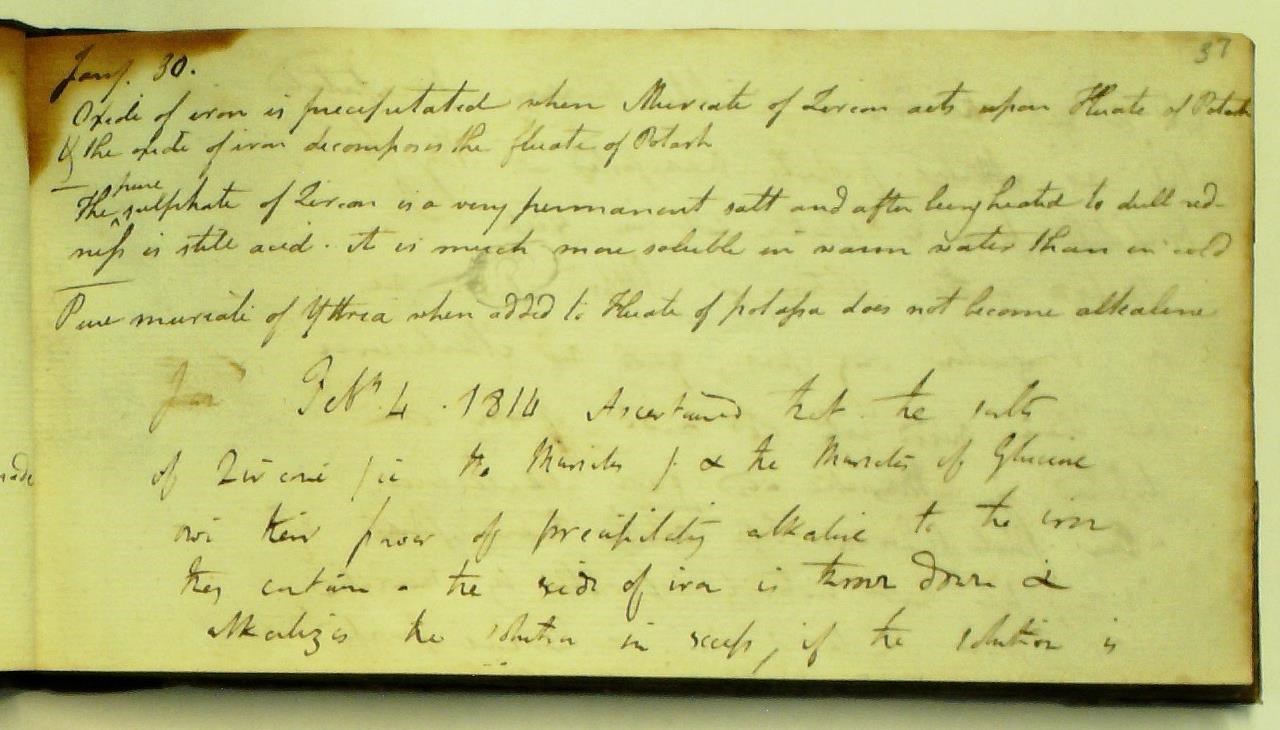 37
Jany. 30.
Oxide of iron is precipitated when Muriate of Zircon acts upon Fluate of Potash
& the oxide of iron decomposes the fluate of Potash
pure
The ^ sulphate of Zircon is a very permanent salt and after being heated to dull red-
ness is still acid. it is much more soluble in warm water than in cold
Pure muriate of Yttria when added to Fluate of potassa does not become alkaline
Jan Feby. 4. 1814 Ascertained that the salts
of Zircone / ie the Muriates / & the Muriates of Glucine
owe their power of precipitating alkaline to the iron
they contain - the oxide of iron is thrown down &
alkalizes the solution in excess, if the solution is